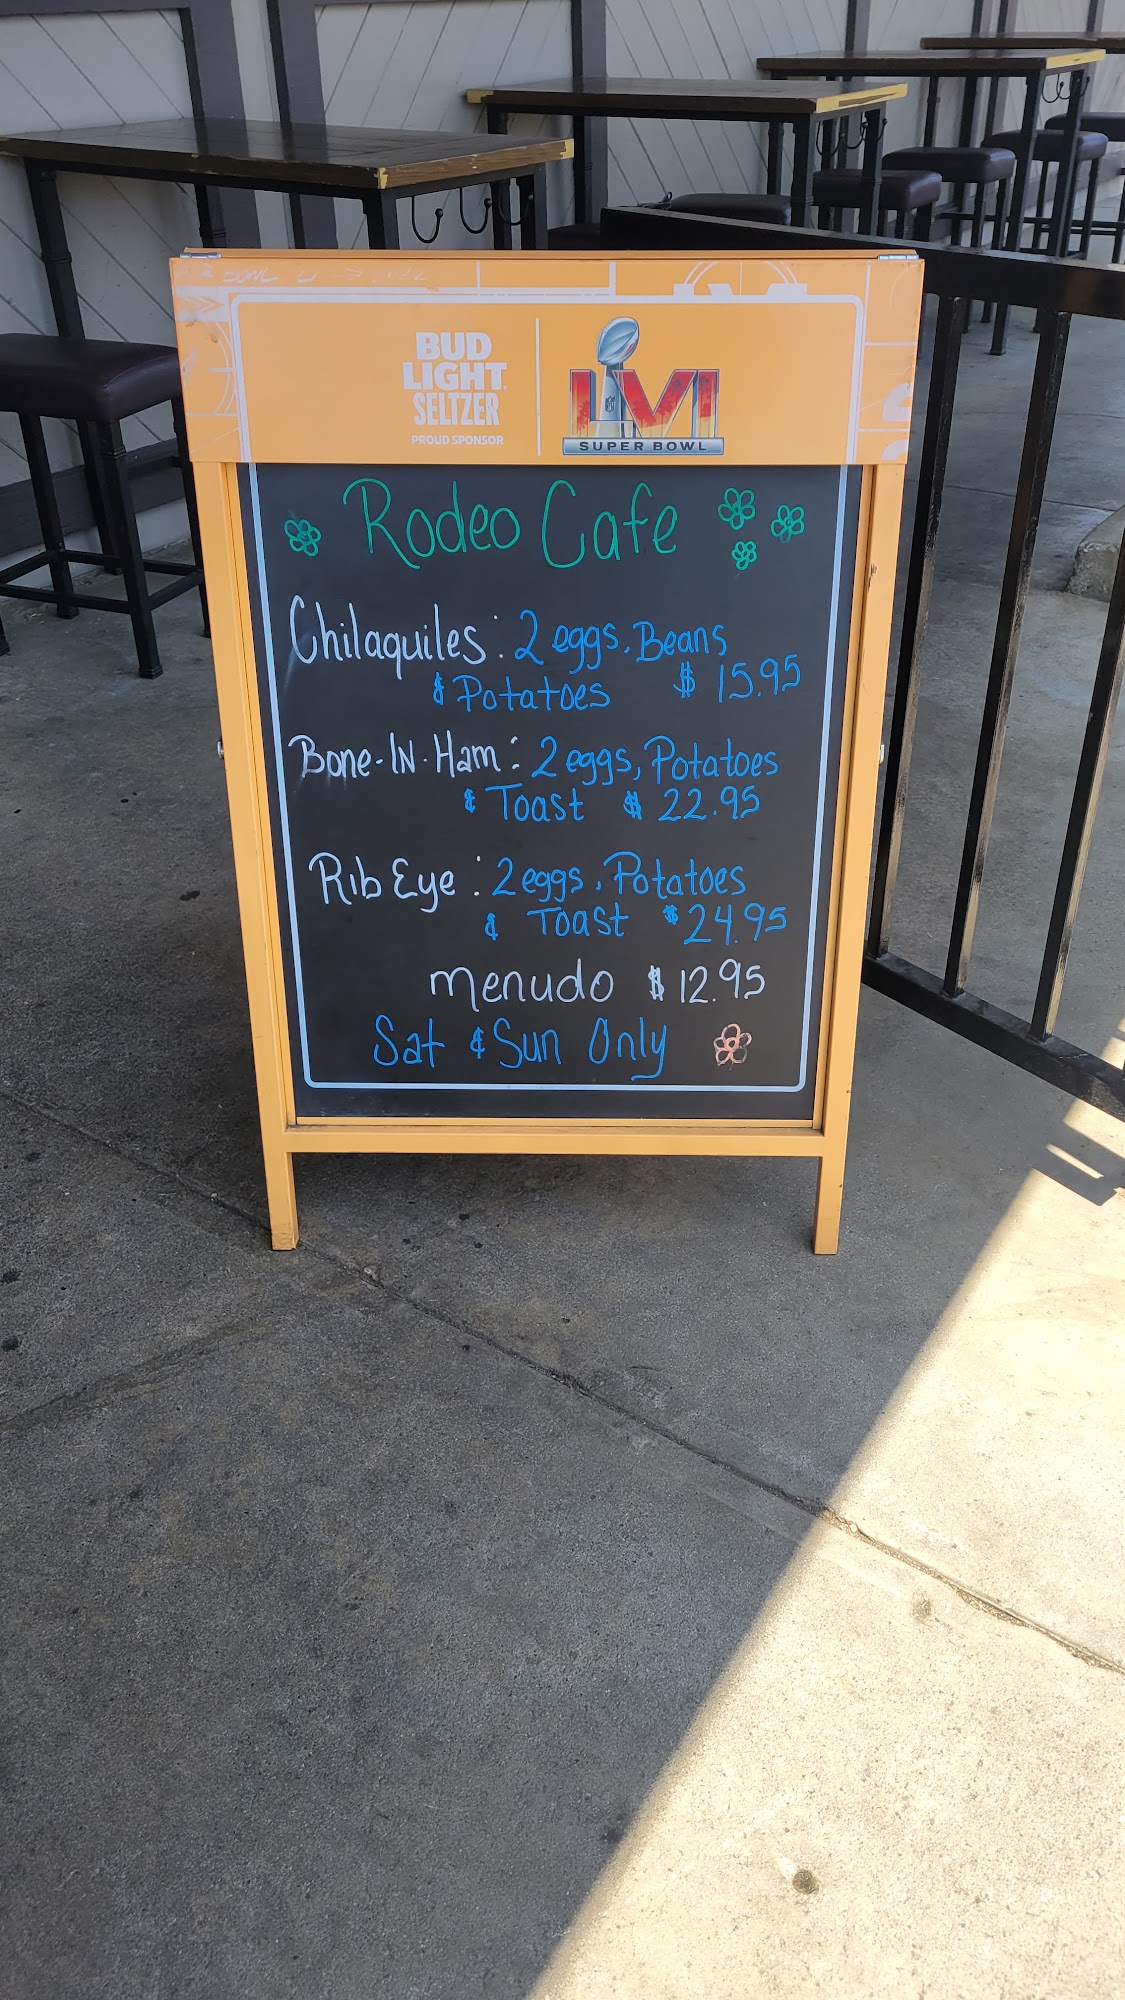 BUD
LIGHT
SELTZER
PROUD SPONSOR
LVI
SUPER BOWL
Rodeo Cafe
Chilaquiles: 2 eggs, Beans
& Potatoes $ 15.95
Bone-IN-Ham: 2 eggs, Potatoes
& Toast $ 22.95
Rib Eye: 2 eggs, Potatoes
& Toast $ 24.95
menudo $ 12.95
Sat & Sun Only